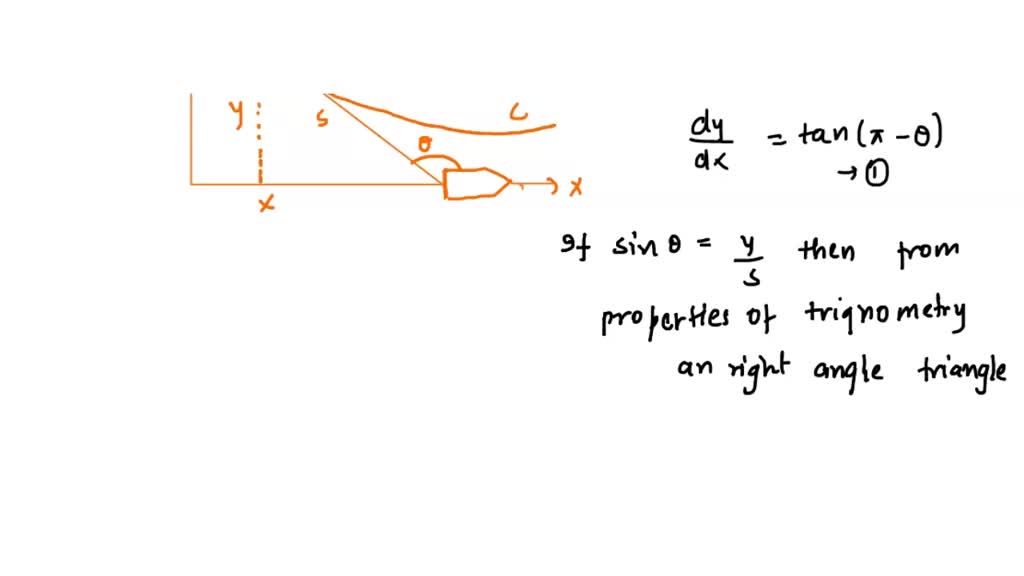 y
s
c
θ
x
x
dy/dx = tan(π - θ)
→ ①
If sin θ = y/s then from
properties of trignometry
an right angle triangle